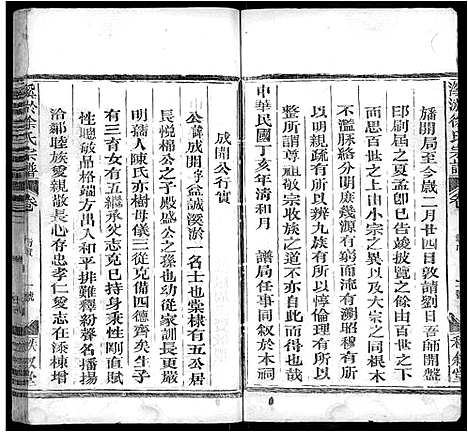 墦開局至今歲二月廿四日敦請劉日吾師開盤
印刷屆之夏孟卽已告竣披覽之餘由百世之下
而求百世之上由小宗之分以及大宗之同根本
以明親疏有所以辨九族有所以惇倫理有所以
明支條絡分明庶幾源有窮而流有溯昭穆有所
考有所謂尊祖敬宗收族之
中華民國丁亥年清和月 譜局任事同叙於本祠
成開公行實
公諱成開字益誠溪淤一名士也棠棣有五公居
長悅棉公之子殿盛公之孫幼也家訓長更嚴
明蒲人陳氏亦樹母儀三從克備四德齊矣生子
有三育女有五繼承父志克巳持身秉性剛直賦
性賢能品格端方出入和平排難釋紛聲名播揚
洽鄰睦族愛親敬長心存忠孝仁愛志在添棟增
徐氏宗譜
卷
秩叙堂
徐氏宗譜
卷
秩叙堂